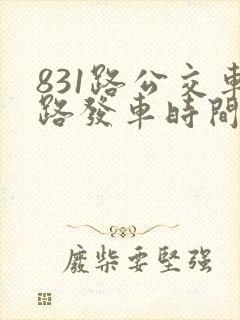 831路公交車
路發車時間
廢柴要堅強